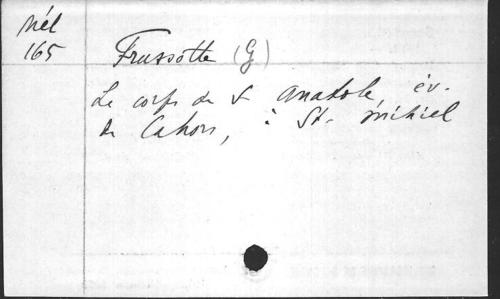 Mél
165
Frussotte (G)
Le corps de St Anatole, év.
de Cahors, à St-Mihiel